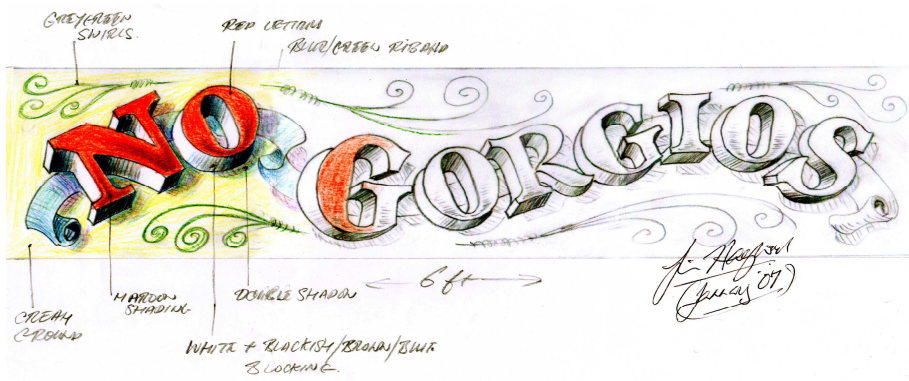 GREYGREEN
SWIRLS.
RED LETTERS
BLUE/GREEN RIBAND
NO GORGIOS
6 ft
MAROON
SHADING
DOUBLE SHADOW
CREAM
GROUND
WHITE + BLACKISH/BROWN/BLUE
BLOCKING.
(January '07)